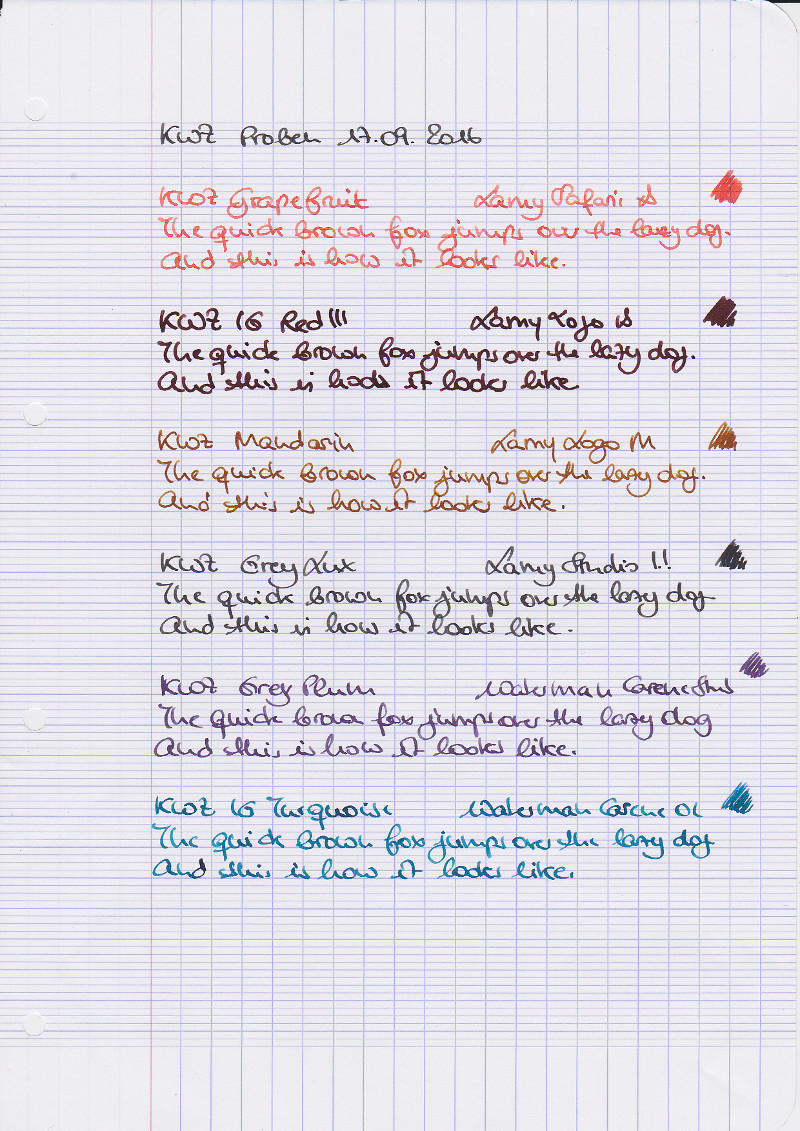 KWZ Proben 17.09. 2016
KWZ Grapefruit Lamy Safari
The quick brown fox jumps over the lazy dog.
And this is how it looks like.
KWZ IG Red Lamy Logo
The quick brown fox jumps over the lazy dog.
And this is it looks like
KWZ Mandarin Lamy Logo M
The quick brown fox jumps over the lazy dog.
And this is how it looks like.
KWZ Grey Lux Lamy Studio 1.1
The quick brown fox jumps over the lazy dog
And this is how it looks like.
KWZ Grey Plum Waterman Carene
The quick brown fox jumps over the lazy dog
And this is how it looks like.
KWZ IG Turquoise Waterman Carene
The quick brown fox jumps over the lazy dog
And this is how it looks like.